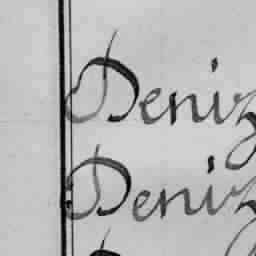 Deniz
Deniz